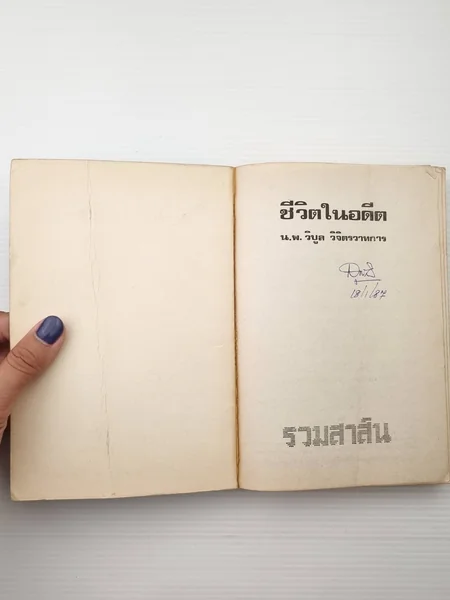 ชีวิตในอดีต
น.พ. วิบูล วิจิตรวาทการ
18/1/87
รวมสาส์น